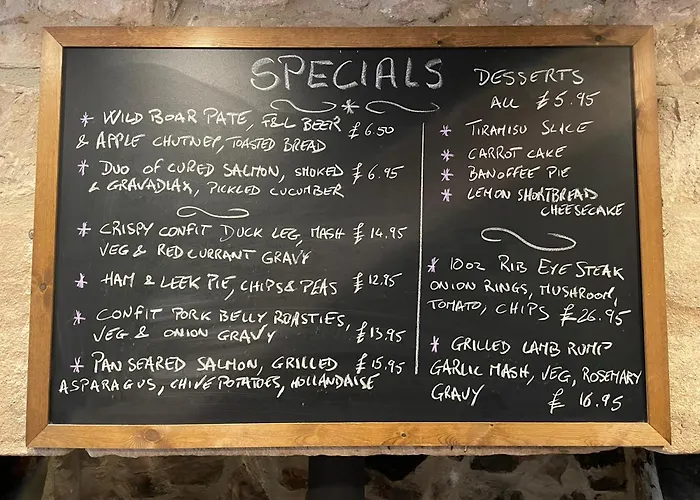 SPECIALS
* WILD BOAR PATE, F&L BEER £6.50
& APPLE CHUTNEY, TOASTED BREAD
* DUO OF CURED SALMON, SMOKED £6.95
& GRAVADLAX, PICKLED CUCUMBER
* CRISPY CONFIT DUCK LEG, MASH £14.95
VEG & REDCURRANT GRAVY
* HAM & LEEK PIE, CHIPS & PEAS £12.95
* CONFIT PORK BELLY ROASTIES,
VEG & ONION GRAVY £13.95
* PAN SEARED SALMON, GRILLED £15.95
ASPARAGUS, CHIVE POTATOES, HOLLANDAISE
DESSERTS
ALL £5.95
* TIRAMISU SLICE
* CARROT CAKE
* BANOFFEE PIE
* LEMON SHORTBREAD
CHEESECAKE
* 10oz RIB EYE STEAK
ONION RINGS, MUSHROOM,
TOMATO, CHIPS £26.95
* GRILLED LAMB RUMP
GARLIC MASH, VEG, ROSEMARY
GRAVY £16.95